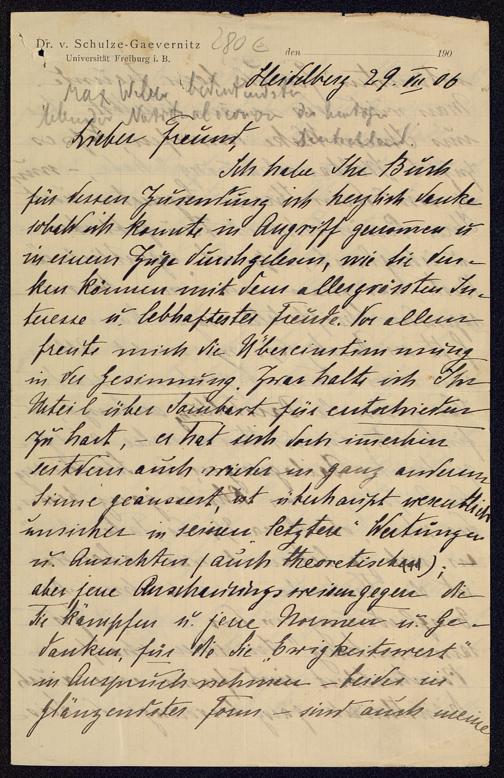 Dr. v. Schulze-Gaevernitz
280 €
Universität Freiburg i. B.
den 190
Heidelberg 29. VII 06
Max Weber bedeutendster
lebender Nationalökonom des heutigen
Deutschland.
Lieber Freund,
Ich habe Ihr Buch
für dessen Zusendung ich herzlich danke
sobald ich konnte in Angriff genommen u
in einem Zuge durchgelesen, wie Sie den-
ken können mit dem allergrössten In-
teresse u. lebhaftester Freude. Vor allem
freute mich die Übereinstimmung
in der Gesinnung. Zwar halte ich Ihr
Urteil über Sombart für entschieden
zu hart, – er hat sich doch imerhin
seitdem auch wieder in ganz anderem
Sinne geäussert, ist überhaupt wesentlich
unsicher in seinen "letzten" Wertungen
u. Ansichten (auch theoretischen);
aber jene Anschauungsweisen gegen die
Sie kämpfen u. jene Normen u. Ge-
danken, für die Sie "Ewigkeitswert"
in Anspruch nehmen – beides in
glänzendster Form – sind auch meine